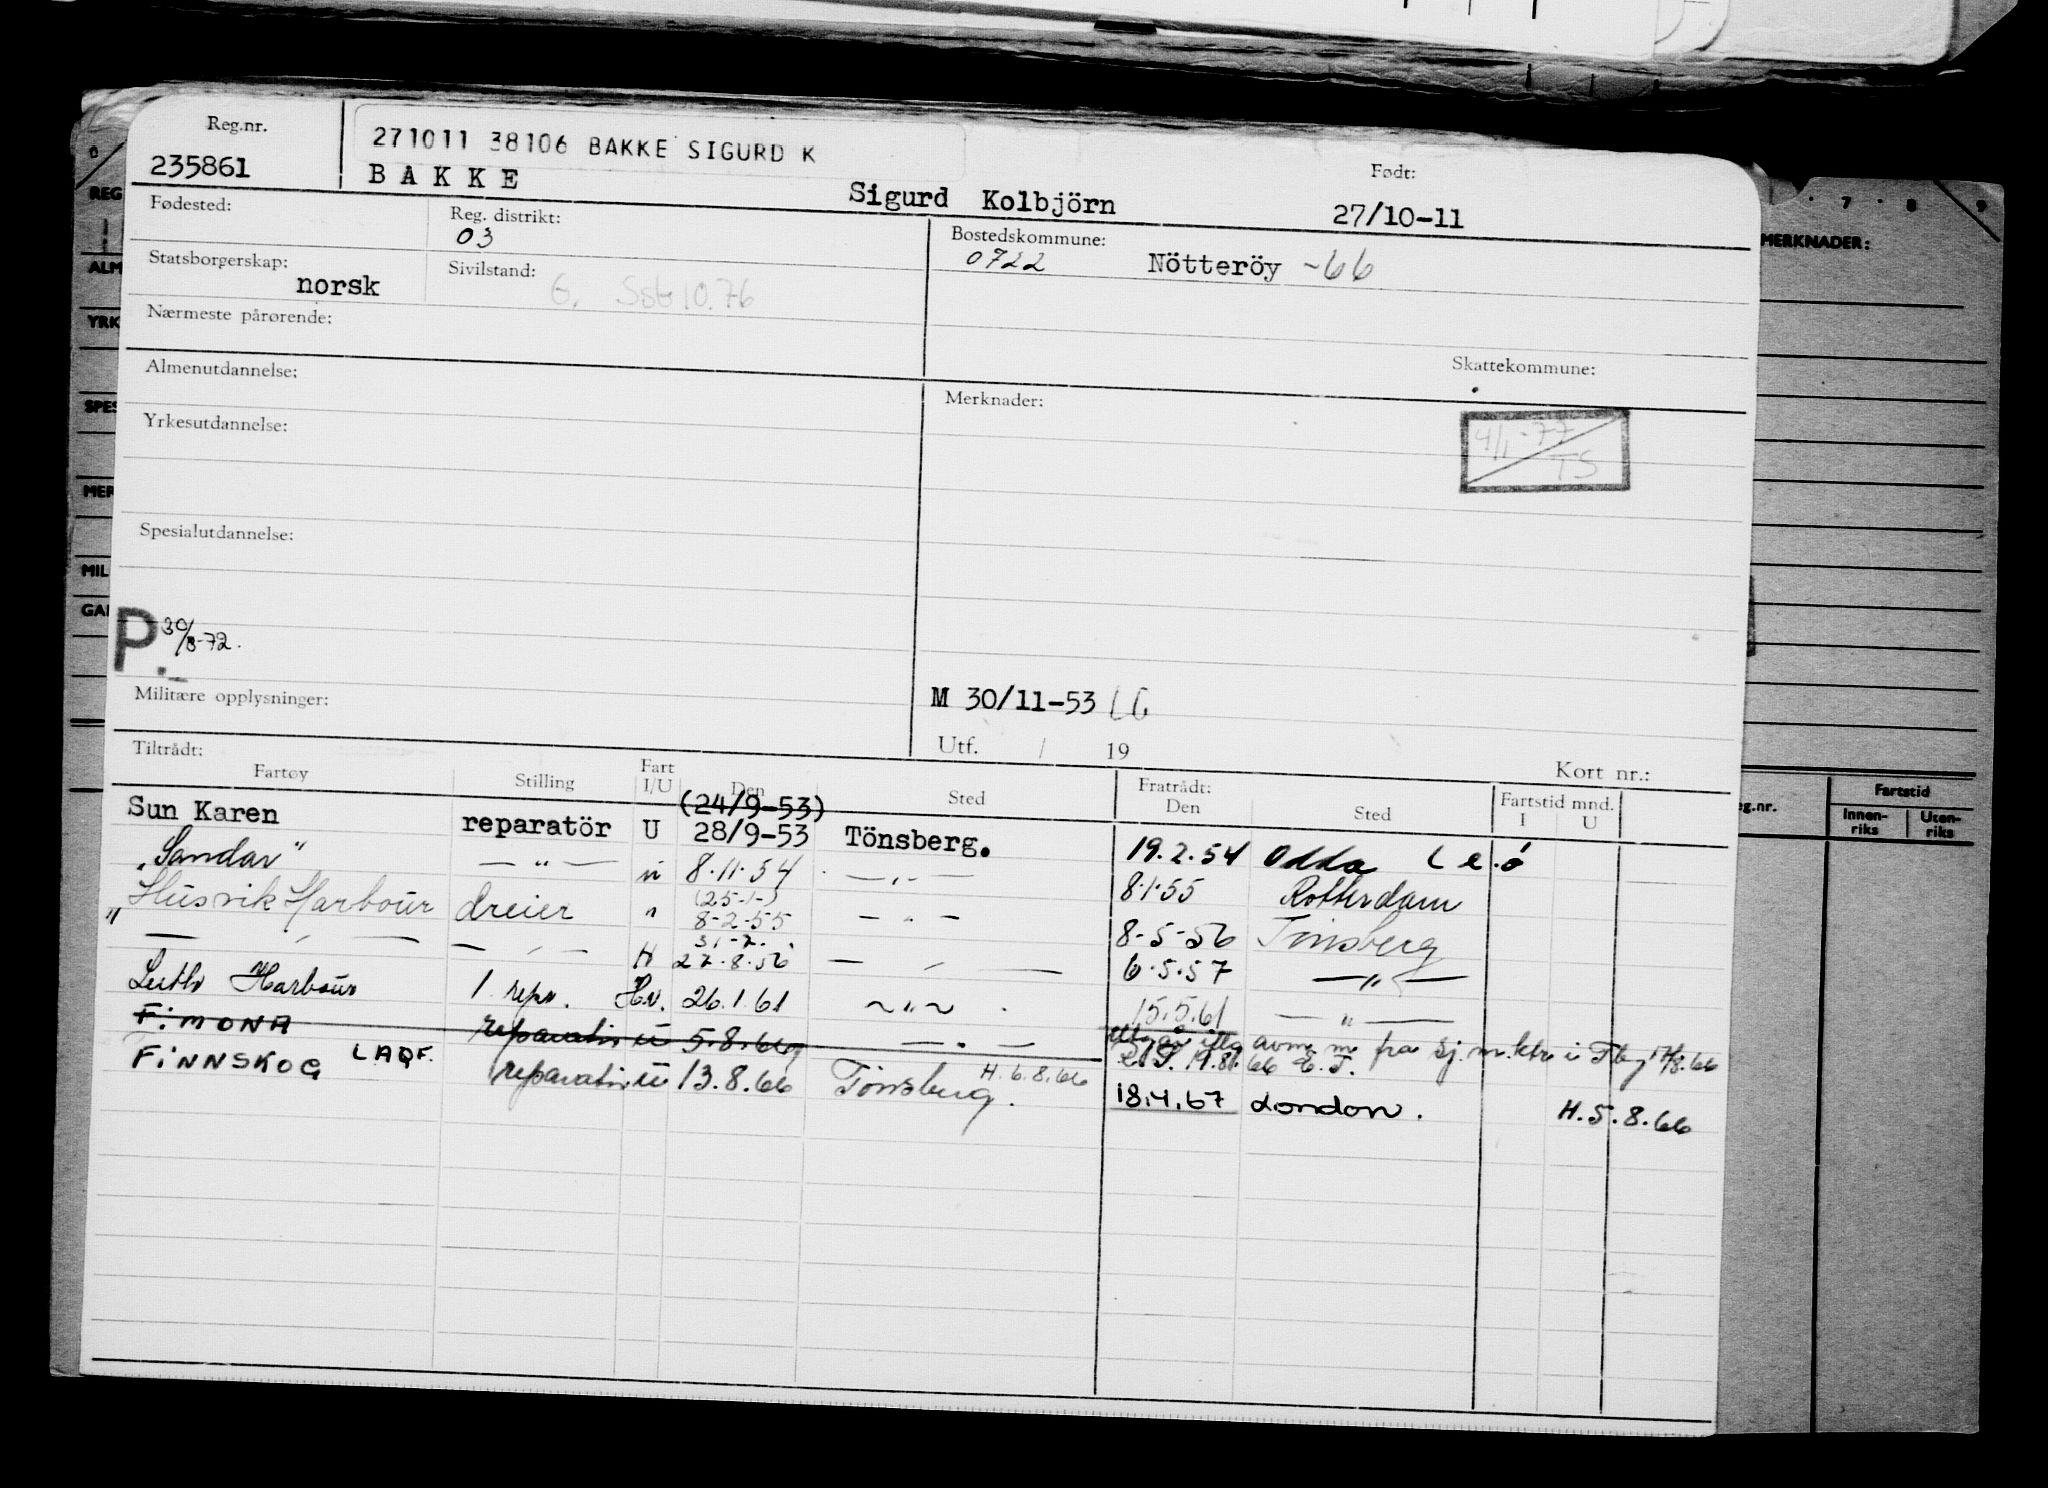 Reg.nr.
271011 38106 BAKKE SIGURD K
235861
BAKKE
Sigurd Kolbjörn
Født:
27/10-11
Fødested:
Reg. distrikt:
03
Bostedskommune:
0722 Nötteröy -66
Statsborgerskap:
norsk
Sivilstand:
G. 10.76
Nærmeste pårørende:
Skattekommune:
Almenutdannelse:
Merknader:
4/1-77
TS
Yrkesutdannelse:
Spesialutdannelse:
P. 30/8-72.
Militære opplysninger:
M 30/11-53 LG
Utf. / 19
Kort nr.:
Tiltrådt:
Fratrådt:
Fartøy Stilling Fart I/U Den Sted Den Sted Fartstid mnd. I U
(24/9-53)
Sun Karen reparatör U 28/9-53 Tönsberg. 19.2.54 Odda
"Sandar" — " — 8.11.54 — " — 8.1.55 Rotterdam
(25-1-)
"Husvik Harbour dreier " 8-2-55 — " — 8-5-56 Tönsberg
31-7.
— " — — " — H 27.8.56 — " — 6.5.57 — " —
Leith Harbour 1. rep. Hv. 26.1.61 — " — 15.5.61 — " —
FIMONA reparatör U 5.8.66 — " — fra sj.m.ktr i Tbg 17/8.66
19.8.66
FINNSKOG LAQF. reparatör U 13.8.66 Tönsberg. H.6.8.66 18.4.67 London. H.5.8.66
REG
ALM
YRK
SPES
MER
MIL
GAR
7 8 9
MERKNADER:
eg.nr.
Fartstid
Innen-riks
Uten-riks